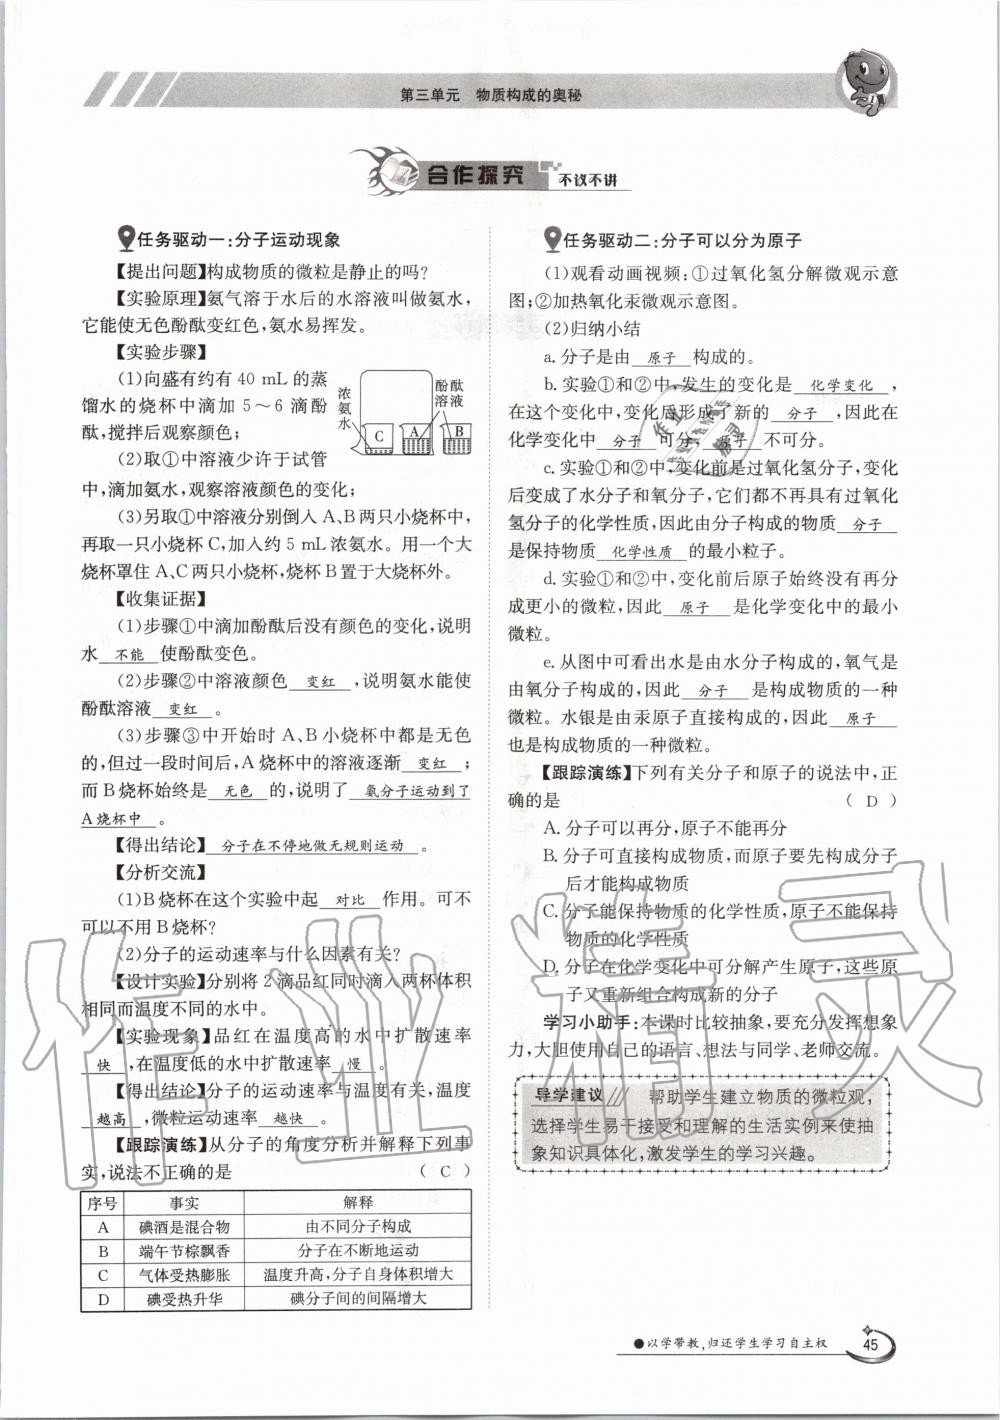 第三单元　物质构成的奥秘
合作探究 不议不讲
任务驱动一:分子运动现象
【提出问题】构成物质的微粒是静止的吗?
【实验原理】氨气溶于水后的水溶液叫做氨水,
它能使无色酚酞变红色,氨水易挥发。
【实验步骤】
(1)向盛有约有 40 mL 的蒸
馏水的烧杯中滴加 5～6 滴酚
酞,搅拌后观察颜色;
(2)取①中溶液少许于试管
浓氨水
酚酞溶液
C A B
中,滴加氨水,观察溶液颜色的变化;
(3)另取①中溶液分别倒入 A、B 两只小烧杯中,
再取一只小烧杯 C,加入约 5 mL 浓氨水。用一个大
烧杯罩住 A、C 两只小烧杯,烧杯 B 置于大烧杯外。
【收集证据】
(1)步骤①中滴加酚酞后没有颜色的变化,说明
水 不能 使酚酞变色。
(2)步骤②中溶液颜色 变红 ,说明氨水能使
酚酞溶液 变红 。
(3)步骤③中开始时 A、B 小烧杯中都是无色
的,但过一段时间后,A 烧杯中的溶液逐渐 变红 ;
而 B 烧杯始终是 无色 的,说明了 氨分子运动到了
A 烧杯中 。
【得出结论】 分子在不停地做无规则运动 。
【分析交流】
(1)B 烧杯在这个实验中起 对比 作用。可不
可以不用 B 烧杯?
(2)分子的运动速率与什么因素有关?
【设计实验】分别将 2 滴品红同时滴入两杯体积
相同而温度不同的水中。
【实验现象】品红在温度高的水中扩散速率
快 ,在温度低的水中扩散速率 慢 。
【得出结论】分子的运动速率与温度有关,温度
越高 ,微粒运动速率 越快 。
【跟踪演练】从分子的角度分析并解释下列事
实,说法不正确的是 ( C )
序号 事实 解释
A 碘酒是混合物 由不同分子构成
B 端午节棕飘香 分子在不断地运动
C 气体受热膨胀 温度升高,分子自身体积增大
D 碘受热升华 碘分子间的间隔增大
任务驱动二:分子可以分为原子
(1)观看动画视频:①过氧化氢分解微观示意
图;②加热氧化汞微观示意图。
(2)归纳小结
a. 分子是由 原子 构成的。
b. 实验①和②中,发生的变化是 化学变化 ,
在这个变化中,变化后形成了新的 分子 ,因此在
化学变化中 分子 可分, 原子 不可分。
c. 实验①和②中,变化前是过氧化氢分子,变化
后变成了水分子和氧分子,它们都不再具有过氧化
氢分子的化学性质,因此由分子构成的物质 分子
是保持物质 化学性质 的最小粒子。
d. 实验①和②中,变化前后原子始终没有再分
成更小的微粒,因此 原子 是化学变化中的最小
微粒。
e. 从图中可看出水是由水分子构成的,氧气是
由氧分子构成的,因此 分子 是构成物质的一种
微粒。水银是由汞原子直接构成的,因此 原子
也是构成物质的一种微粒。
【跟踪演练】下列有关分子和原子的说法中,正
确的是 ( D )
A. 分子可以再分,原子不能再分
B. 分子可直接构成物质,而原子要先构成分子
后才能构成物质
C. 分子能保持物质的化学性质,原子不能保持
物质的化学性质
D. 分子在化学变化中可分解产生原子,这些原
子又重新组合构成新的分子
学习小助手:本课时比较抽象,要充分发挥想象
力,大胆使用自己的语言、想法与同学、老师交流。
导学建议 帮助学生建立物质的微粒观,
选择学生易于接受和理解的生活实例来使抽
象知识具体化,激发学生的学习兴趣。
●以学带教,归还学生学习自主权 45
作业精灵